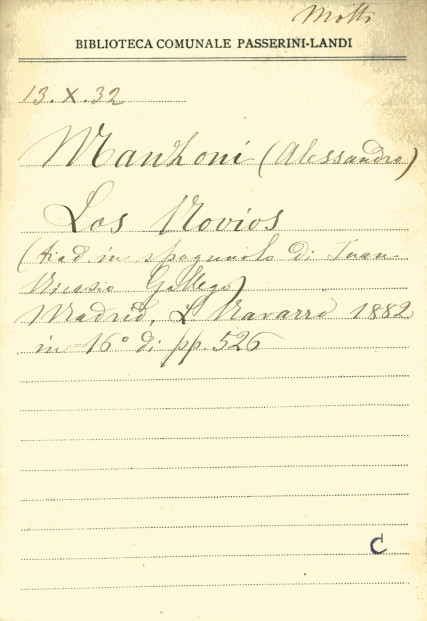 Motti
BIBLIOTECA COMUNALE PASSERINI-LANDI
13.X.32
Manzoni (Alessandro)
Los Novios
(trad in spagnuolo di Juan
Nicasio Gallego)
Madrid, L Navarro 1882
in 16° di pp. 526
C